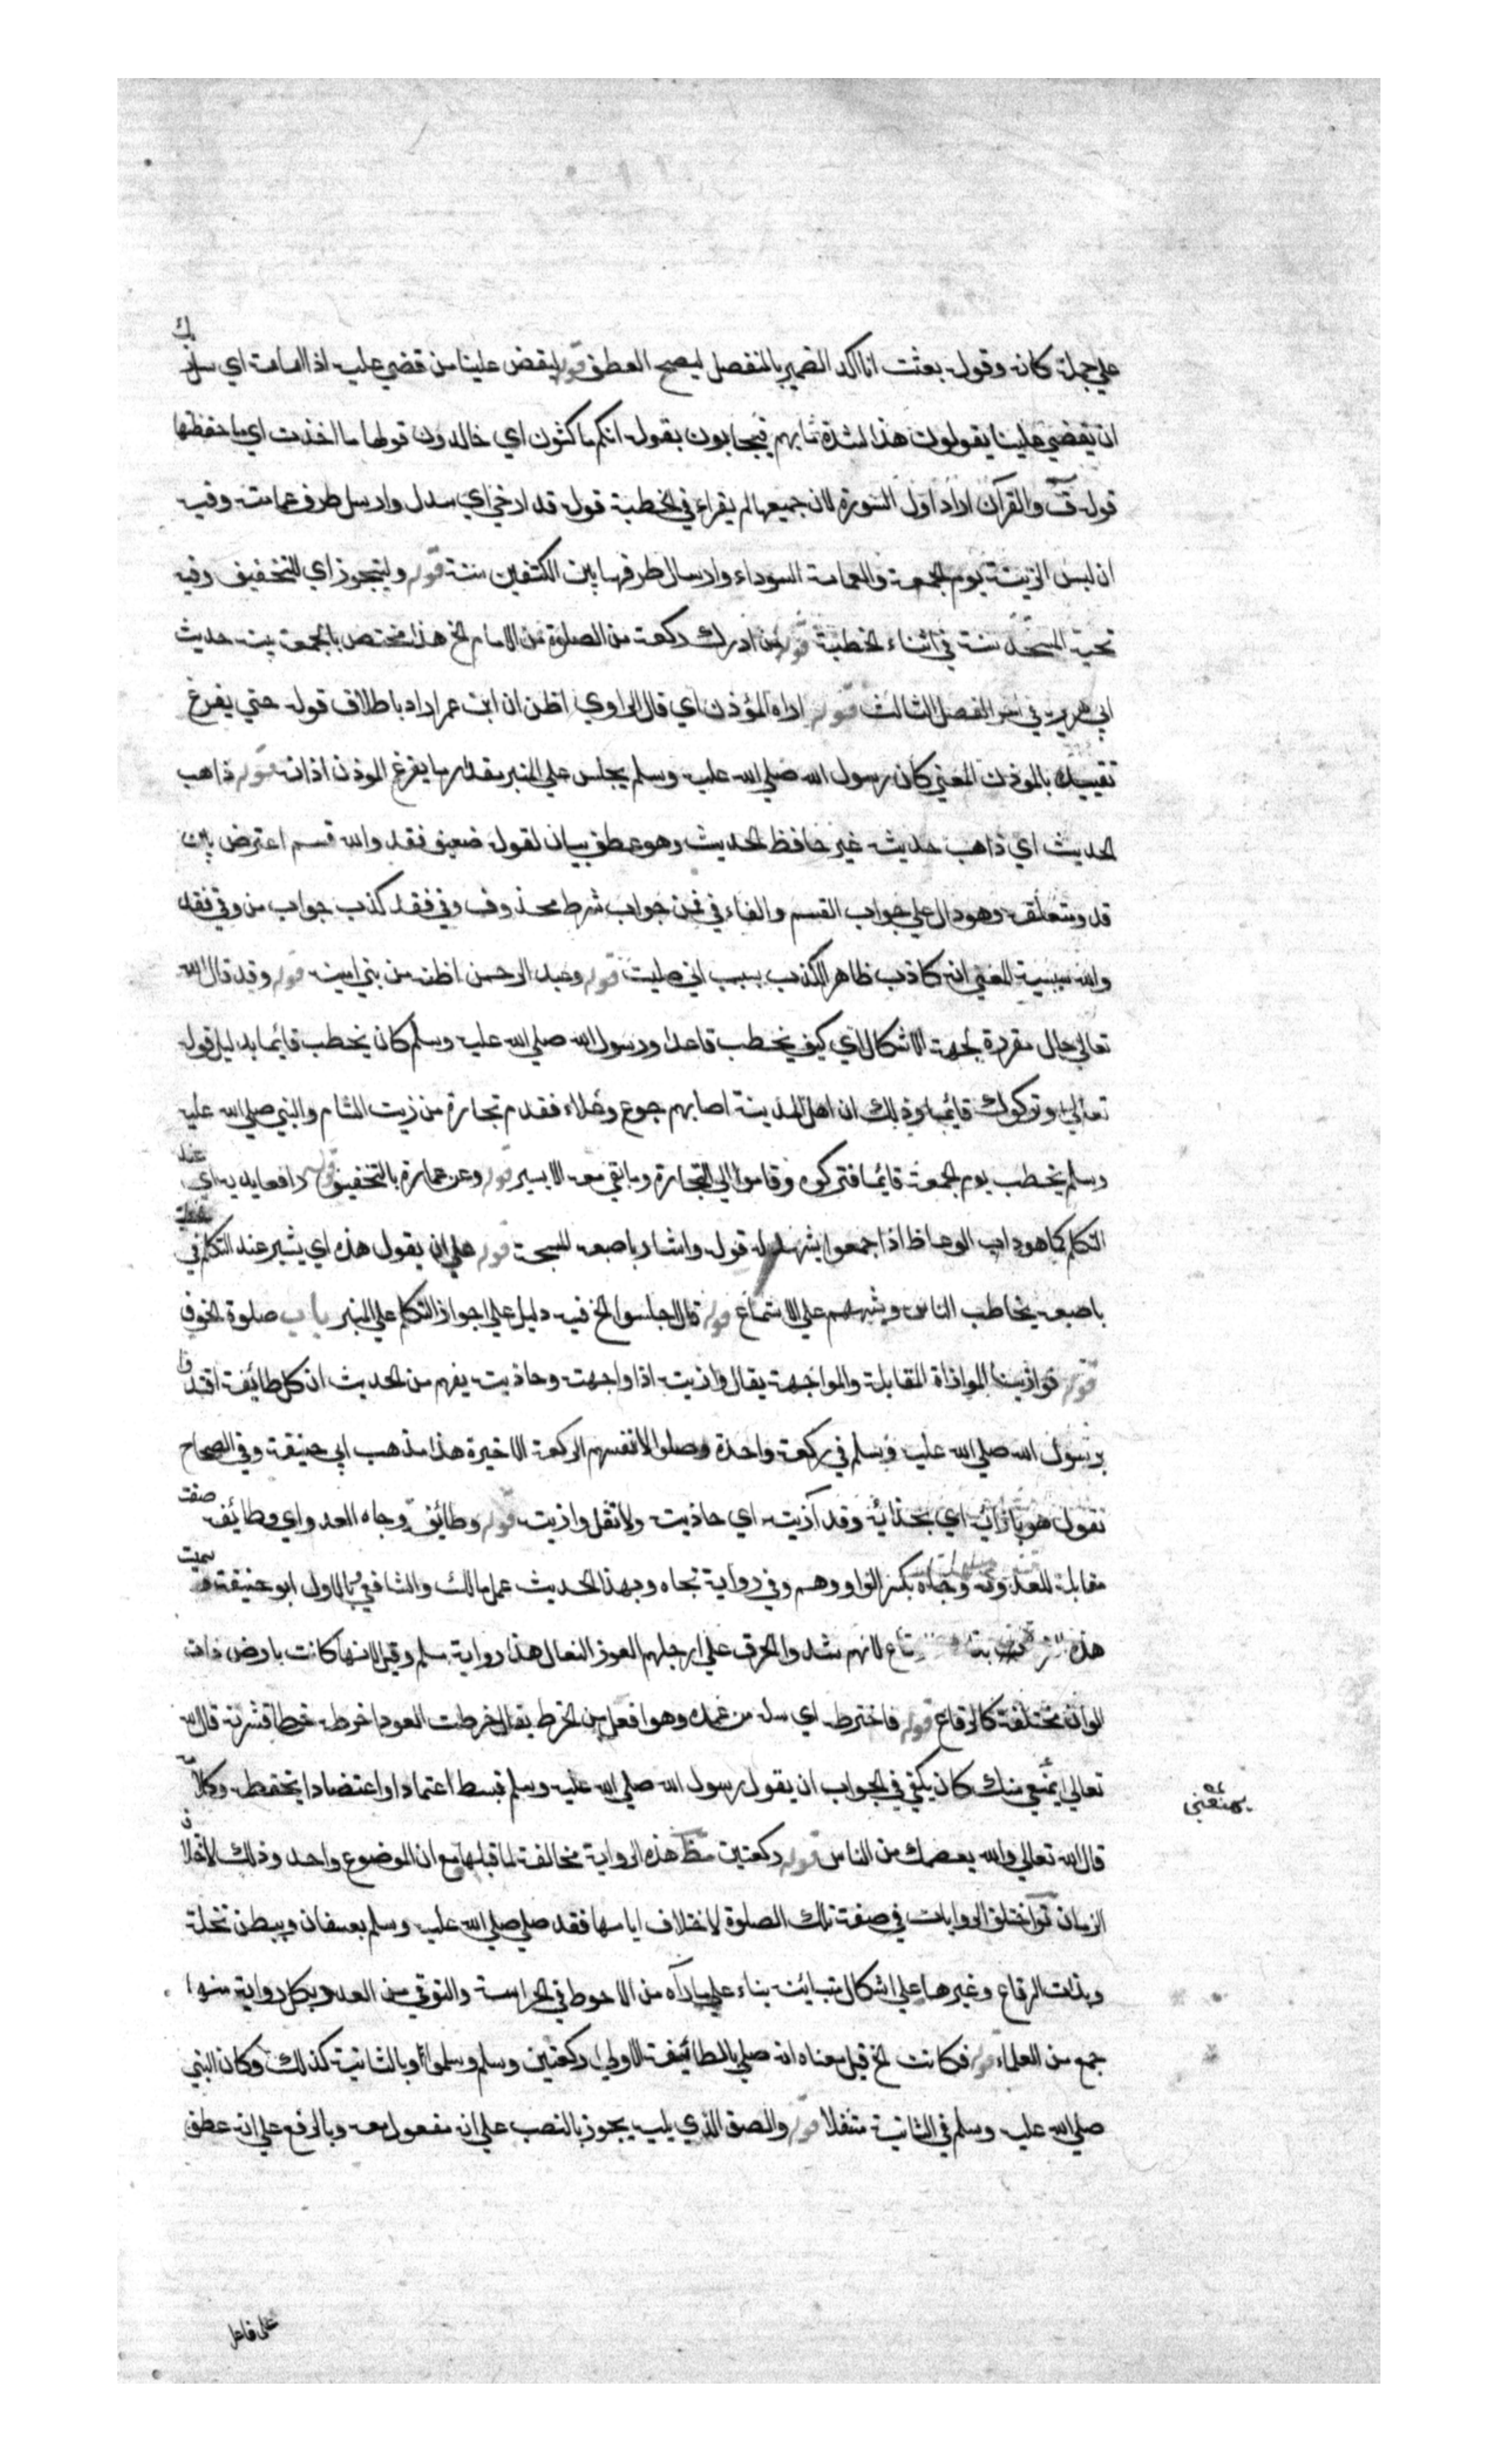 علي جملة كانه وقوله بعثت انا اكد الضمير بالمنفصل ليصح العطف قوله ليقض علينا من قضي عليه اذا اماته اي سل ربك
ان يقضي علينا يقولون هذا لشدة ما بهم فيجابون بقوله انكم ماكثون اي خالدون قولها ما اخذت اي ما حفظتها
قوله ق والقرآن اراد اول السورة لان جميعها لم يقراء في الخطبة قوله قد ارخي اي سدل وارسل طرف عمامته وفيه
ان لبس الزينة يوم الجمعة والعمامة السوداء وارسال طرفها بين الكتفين سنة قوله وليتجوز اي للتخفيف وفيه
تحية المسجد سنة في اثناء الخطبة قوله من ادرك ركعة من الصلوة من الامام الخ هذا مختص بالجمعة بينه حديث
ابي هريرة في اخر الفصل الثالث قوله اراه المؤذن اي قال الراوي اظن ان ابن عمر اراد باطلاق قوله حتي يفرغ
تقييده بالموذن المعني كان رسول الله صلي الله عليه وسلم يجلس علي المنبر مقدار ما يفرغ الموذن اذانه قوله ذاهب
الحديث اي ذاهب حديثه غير حافظ الحديث وهو عطف بيان لقوله ضعيف فقد والله قسم اعترض بين
قد ومتعلقه وهو دال علي جواب القسم والفاء في فمن جواب شرط محذوف وفي فقد كذب جواب من وفي فقد
والله سببية المعني انه كاذب ظاهر الكذب بسبب اني صليت قوله وعبد الرحمن اظنه من بني امية قوله وقد قال الله
تعالي حال مقررة لجهة الاشكال اي كيف يخطب قاعدا ورسول الله صلي الله عليه وسلم كان يخطب قايما بدليل قوله
تعالي وتركوك قائما وذلك ان اهل المدينة اصابهم جوع وغلاء فقدم تجارة من زيت الشام والنبي صلي الله عليه
وسلم يخطب يوم الجمعة قايما فتركوه وقاموا الي التجارة وما بقي معه الا يسير قوله وعن عمارة بالتخفيف قوله رافعا يديه اي عند
التكلم كما هو داب الوعاظ اذا جمعوا يشهد له قوله واشار باصبعه المسبحة قوله علي ان يقول هذه اي يشير عند التكلم في
باصبعه يخاطب الناس وينبههم علي الاستماع قوله قال اجلسوا الخ فيه دليل علي جواز التكلم علي المنبر باب صلوة الخوف
قوله فوازينا الموازاة المقابلة والمواجهة يقال وازيته اذا واجهته وحاذيته يفهم من الحديث ان كل طائفة اقتدوا
برسول الله صلي الله عليه وسلم في ركعة واحدة وصلوا لانفسهم الركعة الاخيرة هذا مذهب ابي حنيفة وفي الصحاح
تقول هو بازائه اي بحذائه وقد آزيته اي حاذيته ولا تقل وازيته قوله وطائفة وجاه العدو اي وطائفة صفت
مقابلة للعدو وجاه بكسر الواو وضم وفي رواية تجاه وبهذا الحديث عمل مالك والشافعي بالاول ابو حنيفة سميت
هذه لانهم شدوا الخرق علي ارجلهم لعوز النعال هذا رواية مسلم وقيل لانها كانت بارض ذات
الوان مختلفة كالرقاع قوله فاخترطه اي سله من غمده وهو افتعل من الخرط يقال خرطت العود اخرطه خرطا قشرته قال الله
تعالي يمنعني منك كان يكفي في الجواب ان يقول رسول الله صلي الله عليه وسلم فبسط اعتمادا واعتضادا بحفظه وكلاءته
يمنعني
قال الله تعالي والله يعصمك من الناس قوله ركعتين مظ هذه الرواية مخالفة لما قبلها مع ان الموضوع واحد وذلك لاختلاف
الزمان تو اختلف الروايات في صفة تلك الصلوة لاختلاف ايامها فقد صلي صلي الله عليه وسلم بعسفان وببطن نخلة
وبذات الرقاع وغيرها علي اشكال متباينة بناء علي ما رآه من الاحوط في الحراسة والتوقي من العدو وبكل رواية منها
جمع من العلماء قوله فكانت الخ قيل معناه انه صلي بالطائفة الاولي ركعتين وسلم وسلموا وبالثانية كذلك وكان النبي
صلي الله عليه وسلم في الثانية متنفلا قوله والصف الذي يليه يجوز بالنصب علي انه مفعول معه وبالرفع علي انه عطف
علي فاعل